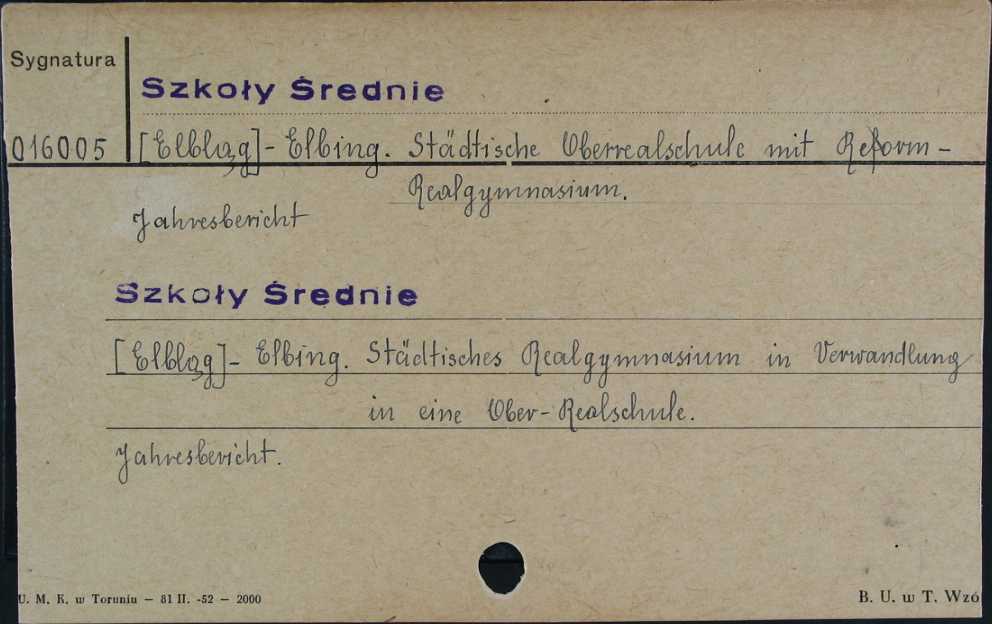 Sygnatura
Szkoły Średnie
016005 [Elbląg] - Elbing. Städtische Oberrealschule mit Reform-
Realgymnasium.
Jahresbericht
Szkoły Średnie
[Elbląg] - Elbing. Städtisches Realgymnasium in Verwandlung
in eine Ober-Realschule.
Jahresbericht.
U. M. K. w Toruniu — 81 II. -52 — 2000
B. U. w T. Wzó